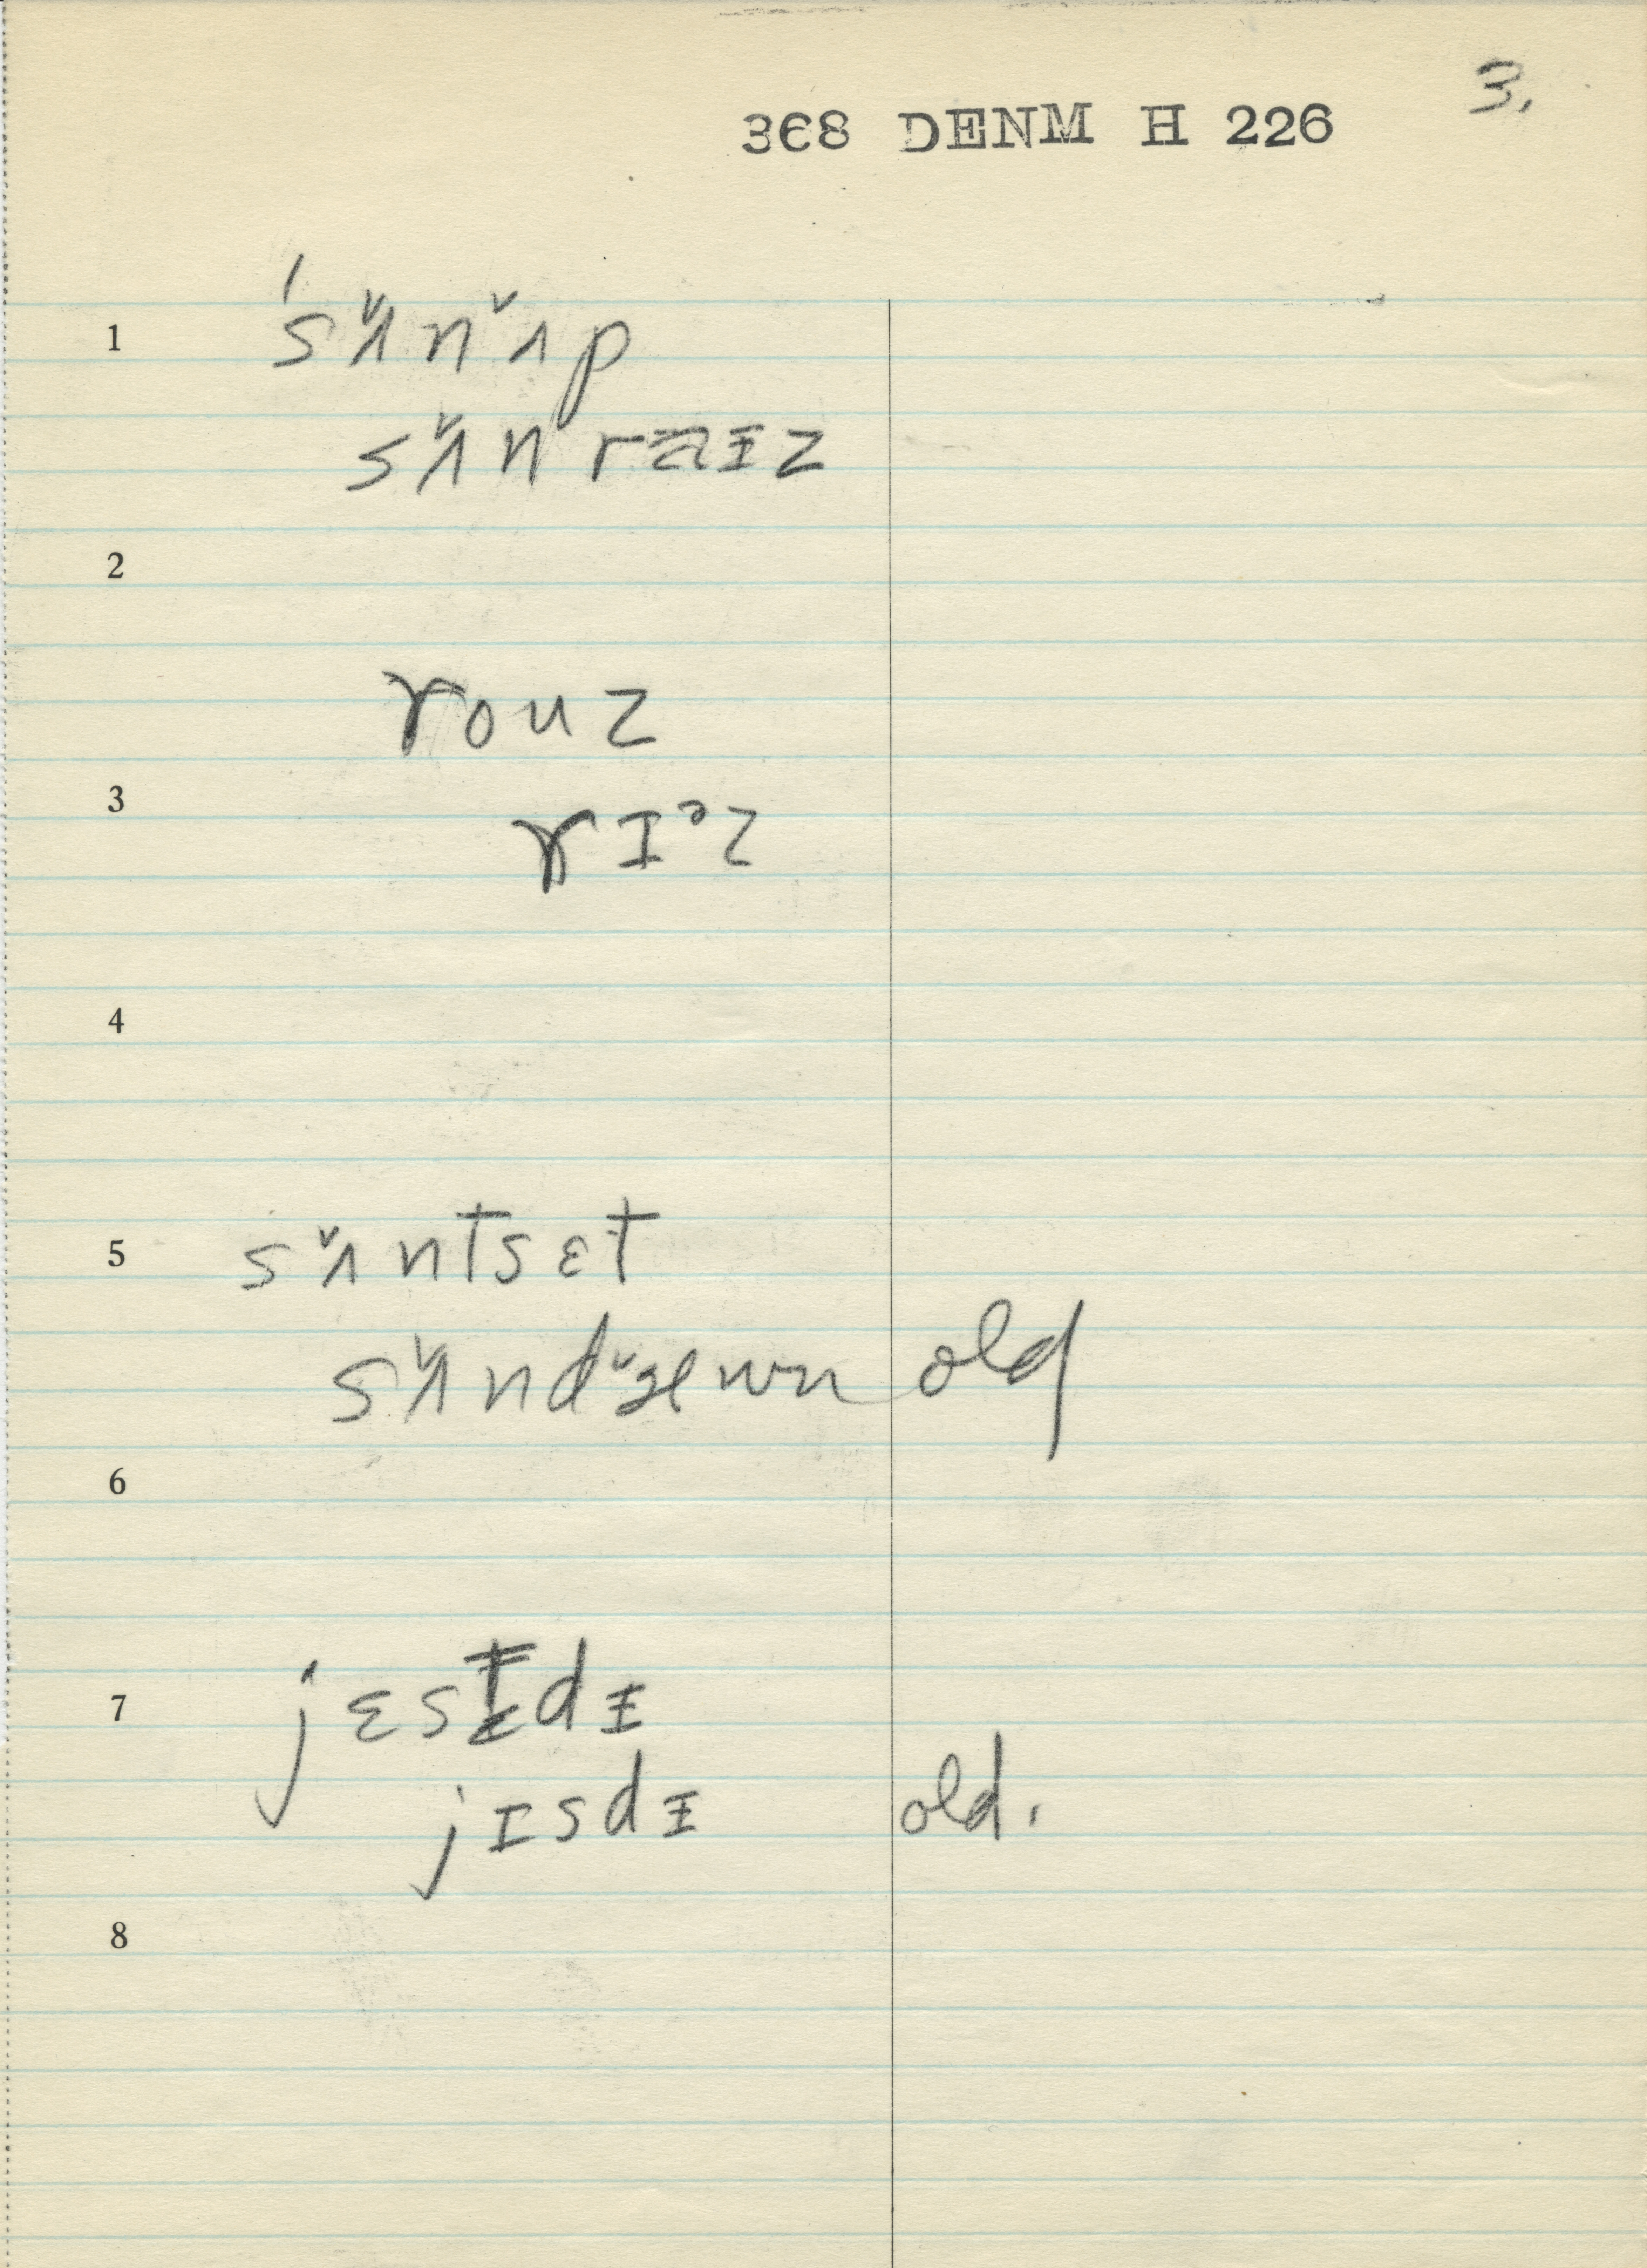 3.
368 DENM H 226
1 ˈsʌ̌nʌ̌p
sʌ̌nraɪz
2
rouz
3
rɪᵊz
4
5 sʌ̌ntsɛt
sʌ̌nd
old
6
7 jɛstɪdɪ
jɪsdɪ old.
8